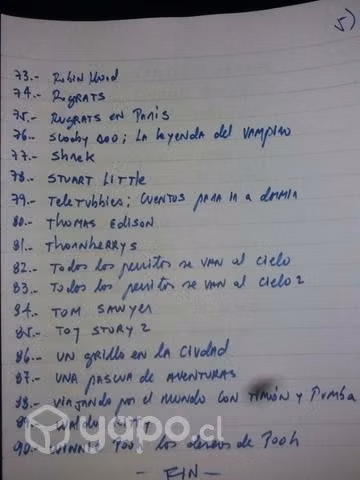 5)
73.- Robin Hood
74.- Rugrats
75.- Rugrats en Paris
76.- Scooby Doo; La leyenda del vampiro
77.- Shrek
78.- Stuart Little
79.- Teletubbies; Cuentos para ir a dormir
80.- Thomas Edison
81.- Thornherrys
82.- Todos los perritos se van al cielo
83.- Todos los perritos se van al cielo 2
84.- Tom Sawyer
85.- Toy Story 2
86.- Un grillo en la ciudad
87.- Una pascua de aventuras
88.- Viajando por el mundo con Timón y Pumba
89.- Waldo Kitty
90.- Winnie Poo: los deseos de Pooh
- FIN -
yapo.cl